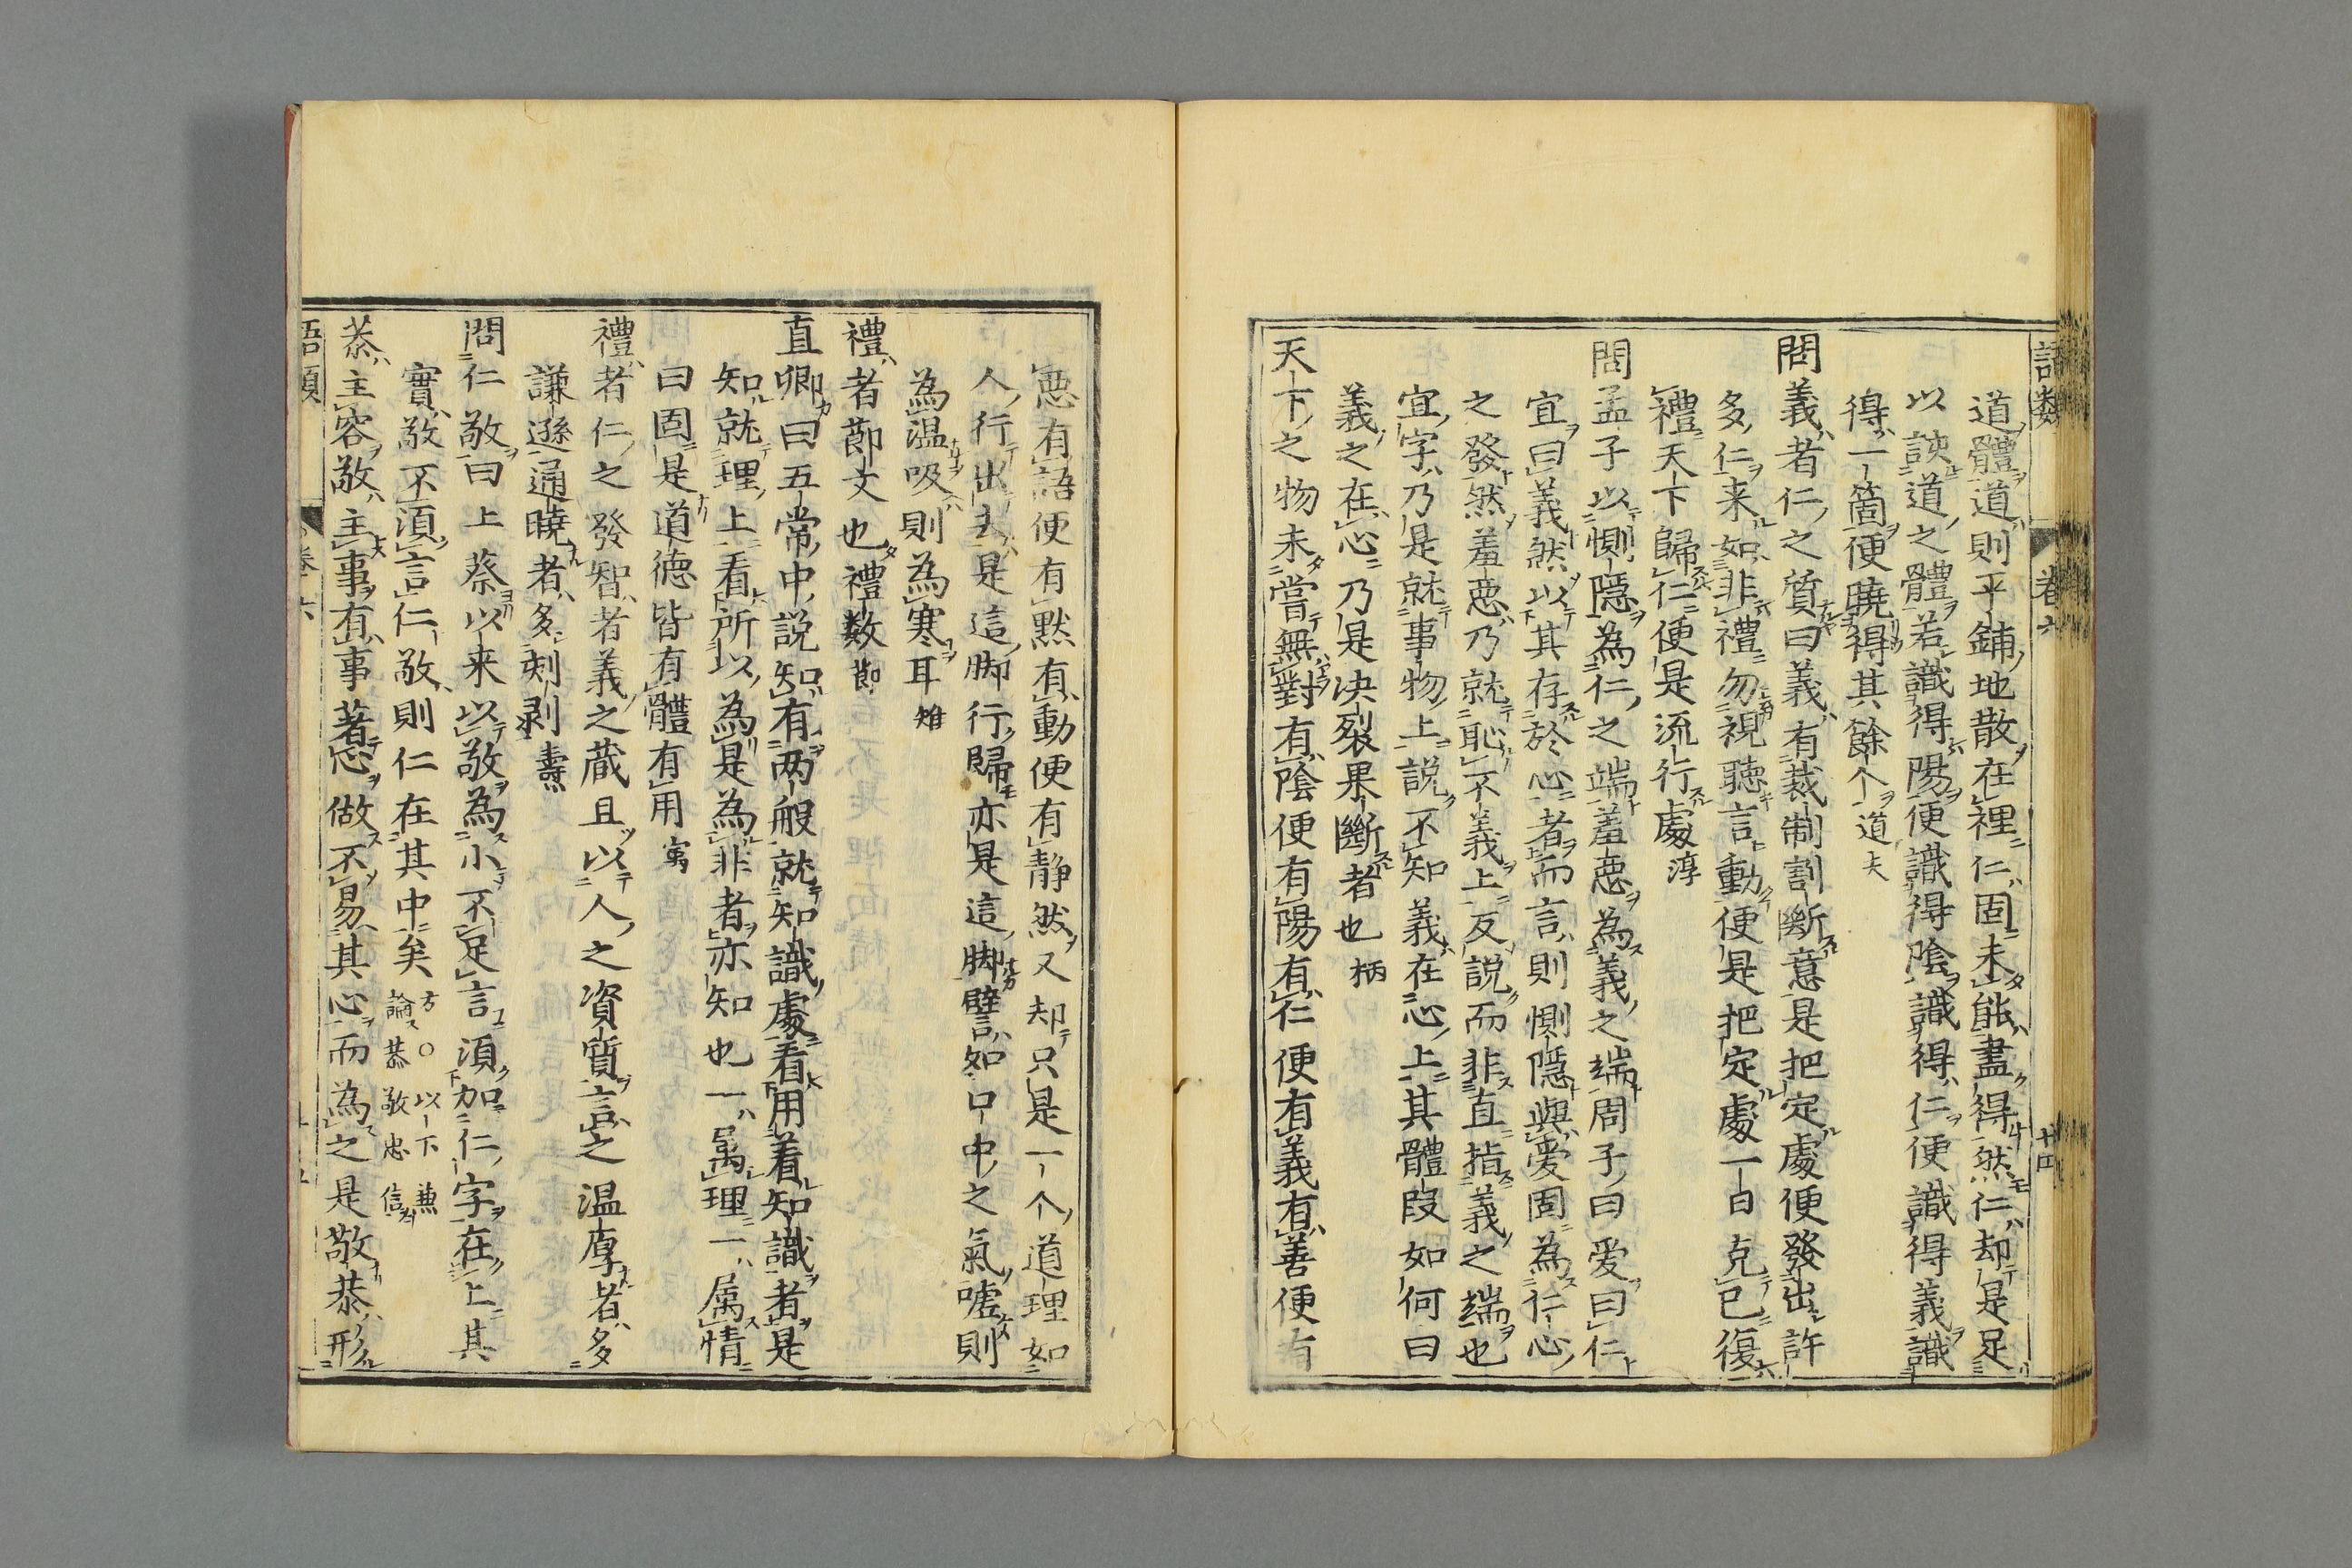 語類 卷六 十四
道體道則平鋪地散在裡仁固未能盡得然仁却是足
以該道之體若識得陽便識得陰識得仁便識得義識
得一箇便曉得其餘个道夫
問義者仁之質曰義有裁制割斷意是把定處便發出許
多仁来如非禮勿視聽言動便是把定處一日克已復
禮天下歸仁便是流行處淳
問孟子以惻隱為仁之端羞惡為義之端周子曰爱曰仁
宜曰義然以其存於心者而言則惻隱與愛固為仁心
之發然羞惡乃就恥不義上反說而非直指義之端也
宜字乃是就事物上說不知義在心上其體段如何曰
義之在心乃是决裂果斷者也柄
天下之物未嘗無對有陰便有陽有仁便有義有善便有
惡有語便有黙有動便有静然又却只是一个道理如
人行出去是這脚行歸亦是這脚譬如口中之氣噓則
為温吸則為寒耳雉
禮者節文也禮数節
直卿曰五常中説知有两般就知識處看用着知識者是
知就理上看所以為是為非者亦知也一属理一属情
曰固是道德皆有體有用㝢
禮者仁之發智者義之蔵且以人之資質言之温厚者多
謙遜通曉者多刻剥燾
問仁敬曰上蔡以来以敬為小不足言須加仁字在上其
實敬不須言仁敬則仁在其中矣方○以下兼
論恭敬忠信
恭主容敬主事有事著心做不易其心而為之是敬恭形
語類 卷六